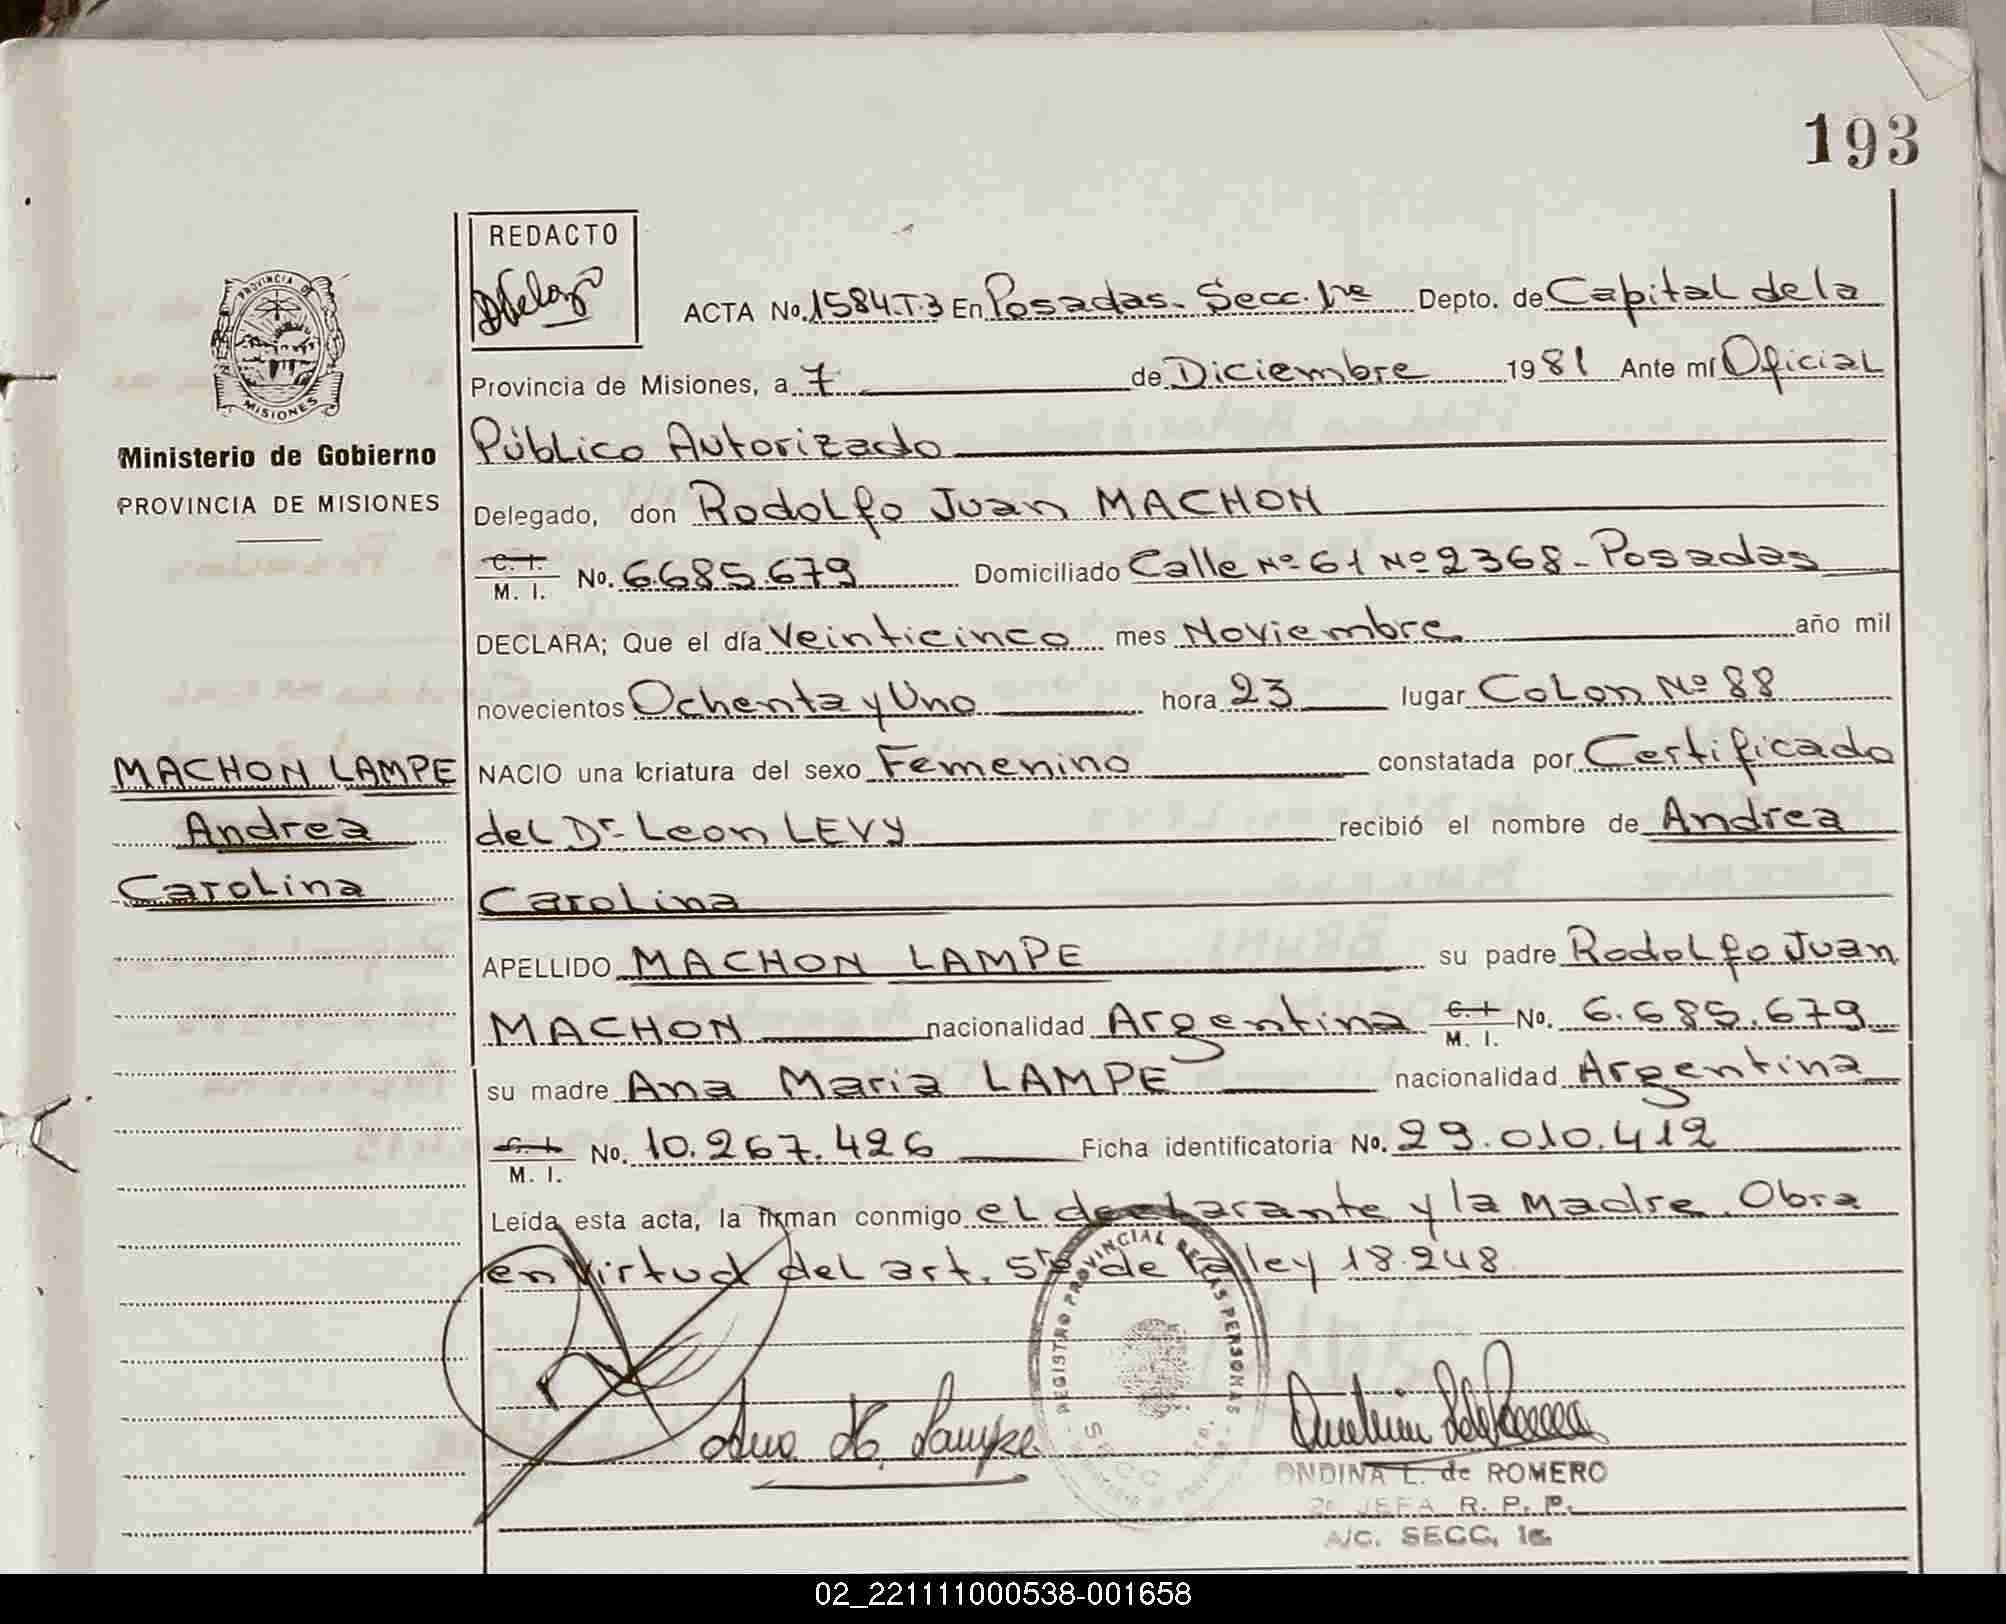 193
REDACTO
ACTA No. 1584 T.3 En Posadas - Secc. 1ra Depto. de Capital de la
PROVINCIA DE
MISIONES
Provincia de Misiones, a 7 de Diciembre 1981 Ante mí Oficial
Ministerio de Gobierno
Público Autorizado
PROVINCIA DE MISIONES
Delegado, don Rodolfo Juan MACHON
C. I.
M. I. No. 6.685.679 Domiciliado Calle Nº 61 Nº 2368 - Posadas
DECLARA; Que el día Veinticinco mes Noviembre año mil
novecientos Ochenta y Uno hora 23 lugar Colon Nº 88
MACHON LAMPE
NACIO una criatura del sexo Femenino constatada por Certificado
Andrea
del Dr. Leon LEVY recibió el nombre de Andrea
Carolina
Carolina
APELLIDO MACHON LAMPE su padre Rodolfo Juan
MACHON nacionalidad Argentina C. I. M. I. No. 6.685.679
su madre Ana Maria LAMPE nacionalidad Argentina
C. I. M. I. No. 10.267.426 Ficha identificatoria No. 29.010.412
Leída esta acta, la firman conmigo el declarante y la madre. Obra
en virtud del art. 5to de la ley 18.248
REGISTRO PROVINCIAL DE LAS PERSONAS
SECC
Ana M. Lampe
ONDINA E. de ROMERO
2a JEFA R. P. P.
A/C. SECC. 1a.
02_221111000538-001658